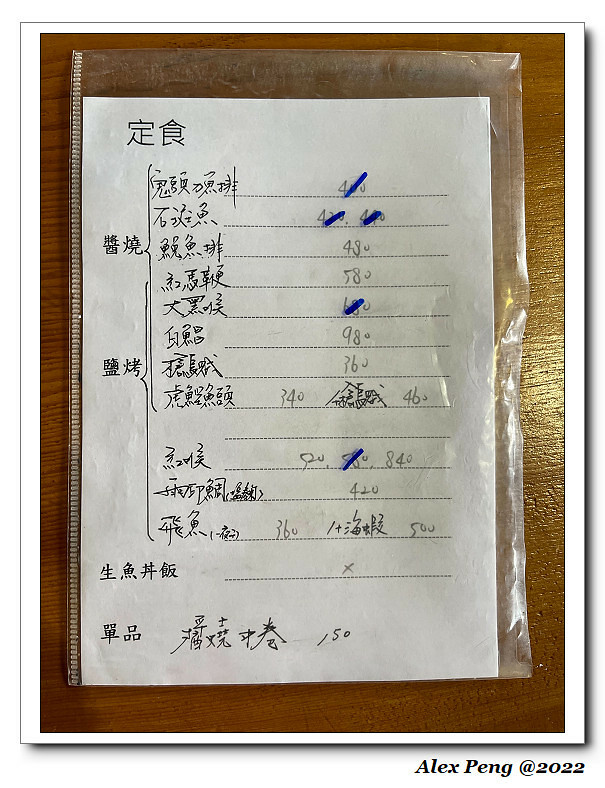 定食
鬼頭刀魚排 400
石斑魚 420. 440
醬燒
鮸魚排 480
紅馬鞭 580
大黑喉 680
白鯧 980
鹽烤
搶烏賊 360
虎鰹魚頭 340 搶烏賊 460
紅喉 520. 580. 840
雨印鯛(鹽烤) 420
飛魚(一夜干) 360 1+海蝦 500
生魚丼飯 ×
單品 醬燒中卷 150
Alex Peng @2022